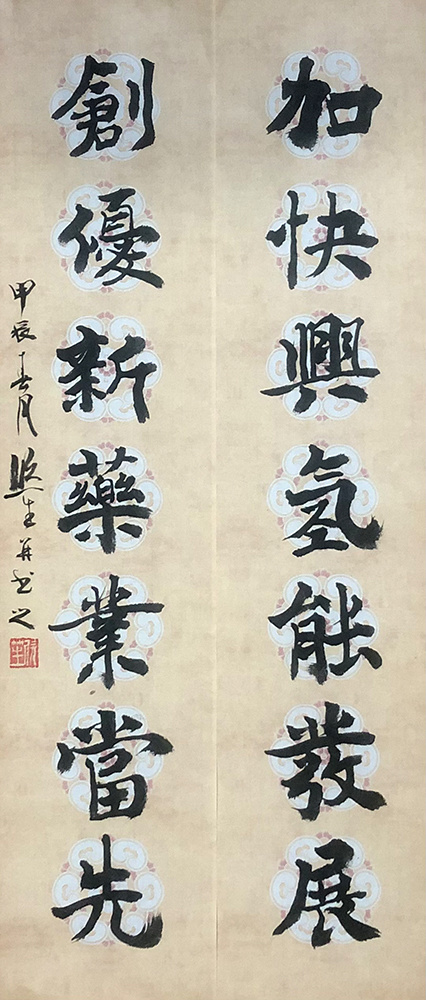 加快興氢能發展
創優新藥業當先
甲辰春月 生并书之